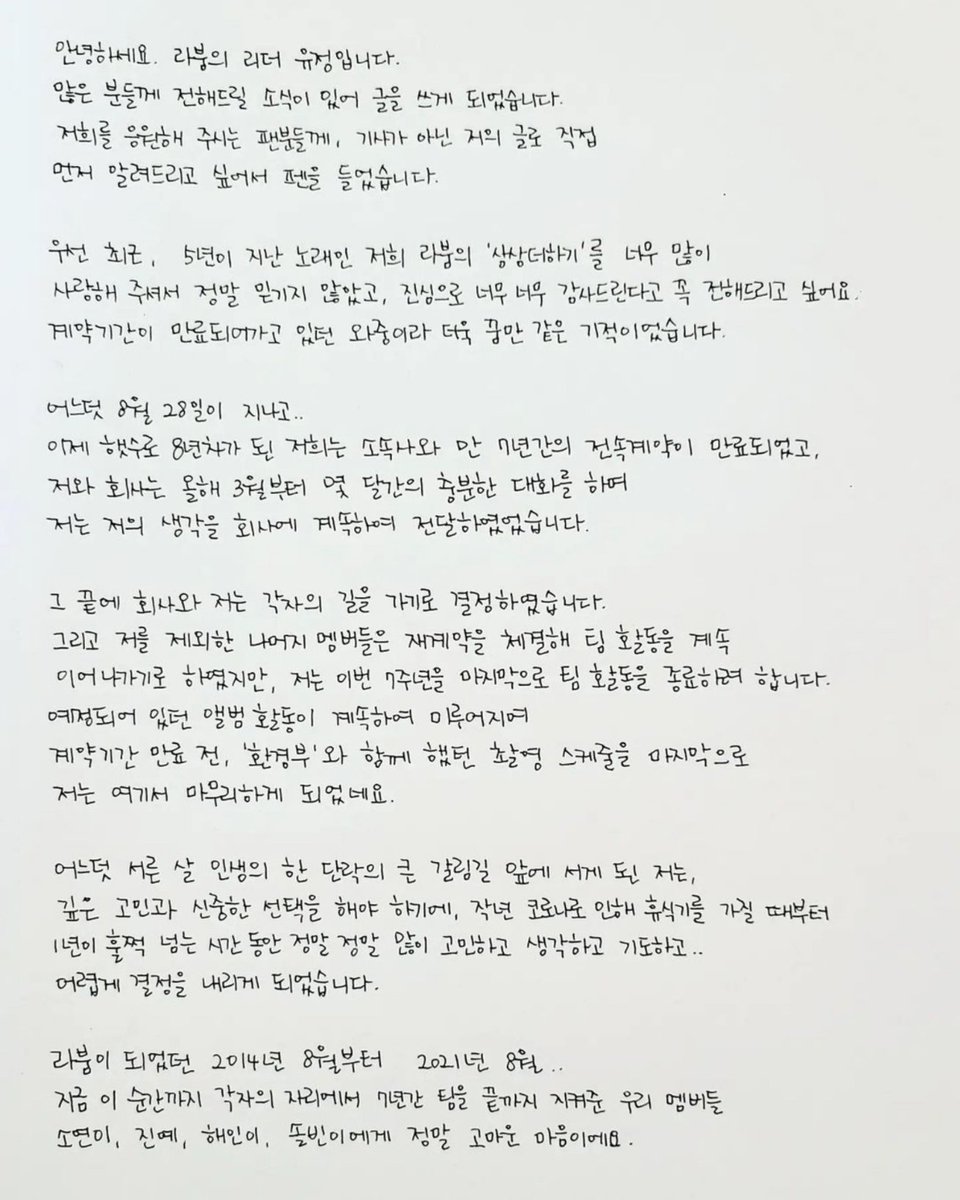 안녕하세요. 라붐의 리더 유정입니다.
많은 분들께 전해드릴 소식이 있어 글을 쓰게 되었습니다.
저희를 응원해 주시는 팬분들께, 기사가 아닌 저의 글로 직접
먼저 알려드리고 싶어서 펜을 들었습니다.
우선 최근, 5년이 지난 노래인 저희 라붐의 '상상더하기'를 너무 많이
사랑해 주셔서 정말 믿기지 않았고, 진심으로 너무 너무 감사드린다고 꼭 전해드리고 싶어요.
계약기간이 만료되어가고 있던 와중이라 더욱 꿈만 같은 기적이었습니다.
어느덧 8월 28일이 지나고..
이제 햇수로 8년차가 된 저희는 소속사와 만 7년간의 전속계약이 만료되었고,
저와 회사는 올해 3월부터 몇 달간의 충분한 대화를 하며
저는 저의 생각을 회사에 계속하여 전달하였었습니다.
그 끝에 회사와 저는 각자의 길을 가기로 결정하였습니다.
그리고 저를 제외한 나머지 멤버들은 재계약을 체결해 팀 활동을 계속
이어나가기로 하였지만, 저는 이번 7주년을 마지막으로 팀 활동을 종료하려 합니다.
예정되어 있던 앨범 활동이 계속하여 미루어지며
계약기간 만료 전, '환경부'와 함께 했던 촬영 스케줄을 마지막으로
저는 여기서 마무리하게 되었네요.
어느덧 서른 살 인생의 한 단락의 큰 갈림길 앞에 서게 된 저는,
깊은 고민과 신중한 선택을 해야 하기에, 작년 코로나로 인해 휴식기를 가질 때부터
1년이 훌쩍 넘는 시간 동안 정말 정말 많이 고민하고 생각하고 기도하고..
어렵게 결정을 내리게 되었습니다.
라붐이 되었던 2014년 8월부터 2021년 8월..
지금 이 순간까지 각자의 자리에서 7년간 팀을 끝까지 지켜준 우리 멤버들
소연이, 진예, 해인이, 솔빈이에게 정말 고마운 마음이에요.